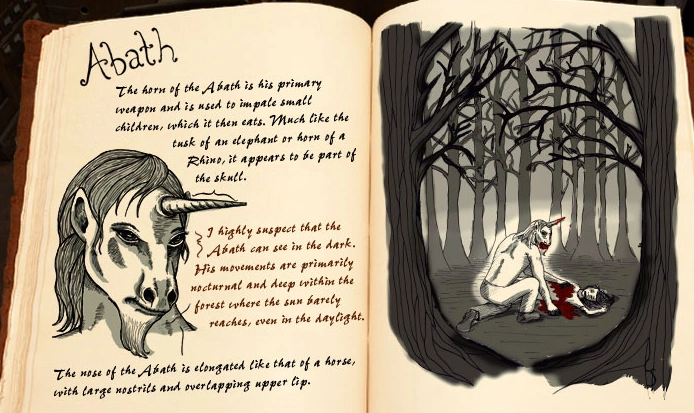 Abath
The horn of the Abath is his primary
weapon and is used to impale small
children, which it then eats. Much like the
tusk of an elephant or horn of a
Rhino, it appears to be part of
the skull.
I highly suspect that the
Abath can see in the dark.
His movements are primarily
nocturnal and deep within the
forest where the sun barely
reaches, even in the daylight.
The nose of the Abath is elongated like that of a horse,
with large nostrils and overlapping upper lip.